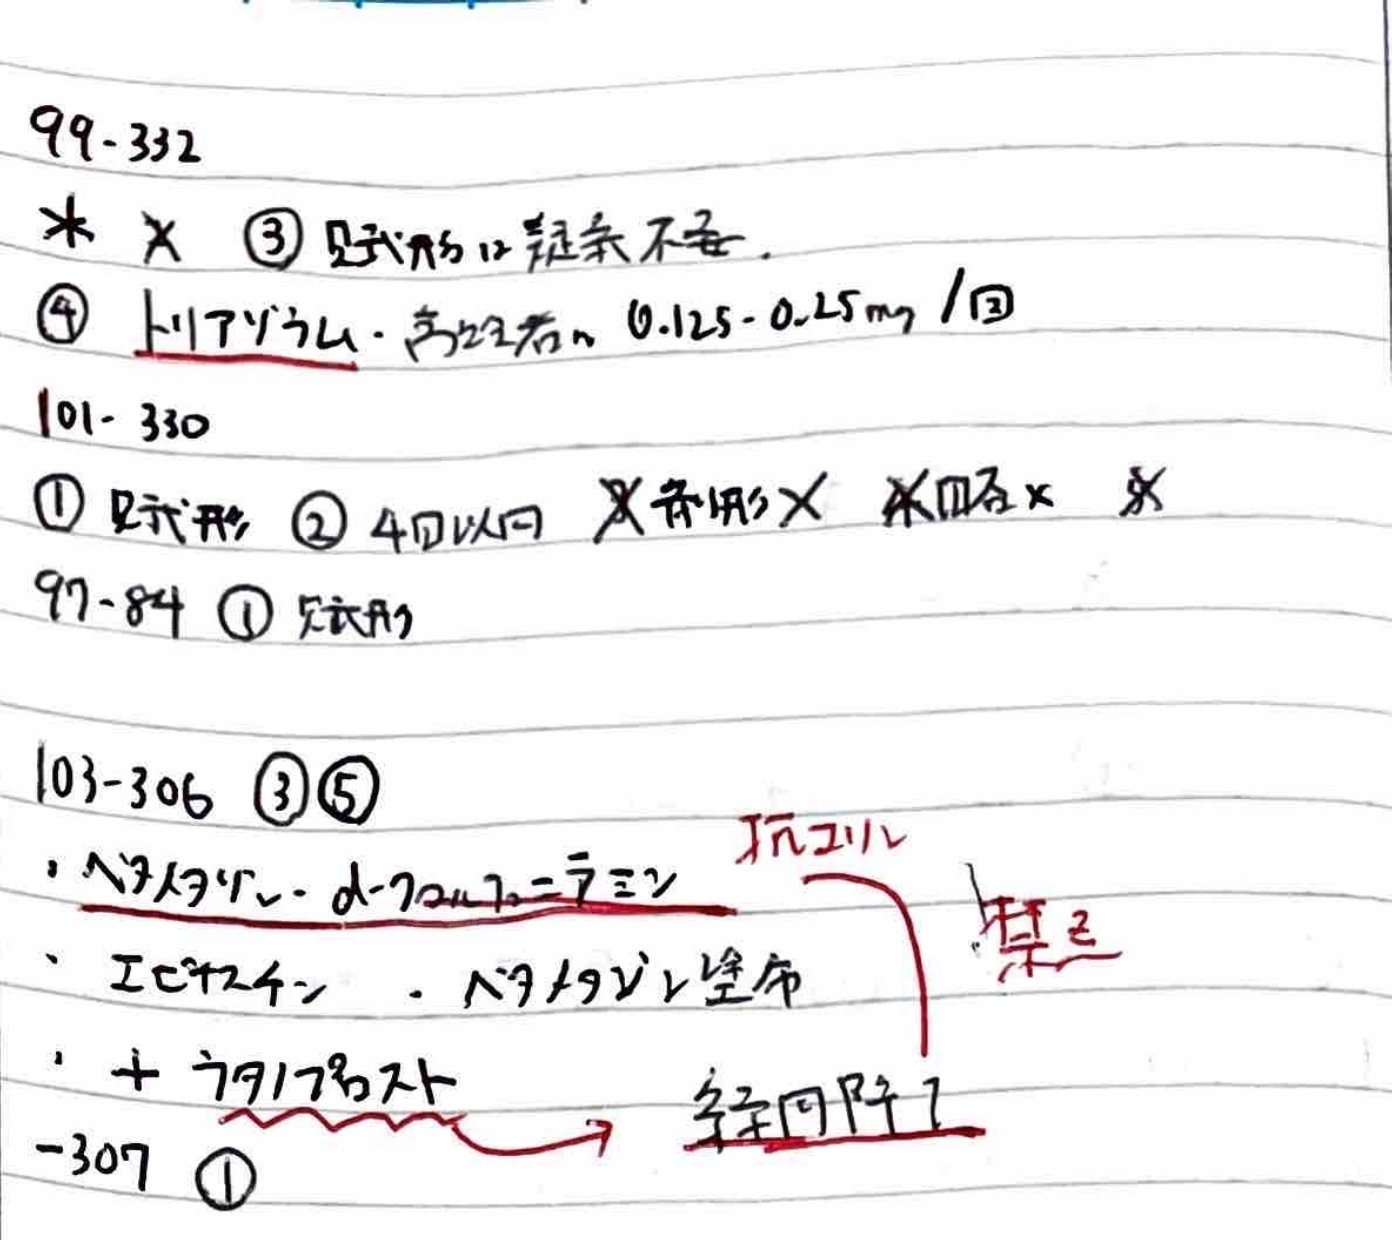 99-332
* × ③ 貝式形は 疑条不
④ トリアゾラム・高 者 0.125-0.25mg /回
101-330
① 貝式形 ② 4回以内 形× ×
97-84 ①
103-306 ③⑤
・ベタメタゾン・d-クロルフェニラミン 抗コリン
・エピナスチン ・ベタメタゾン塗布 禁忌
・+ ラタノプロスト 緑内障
-307 ①